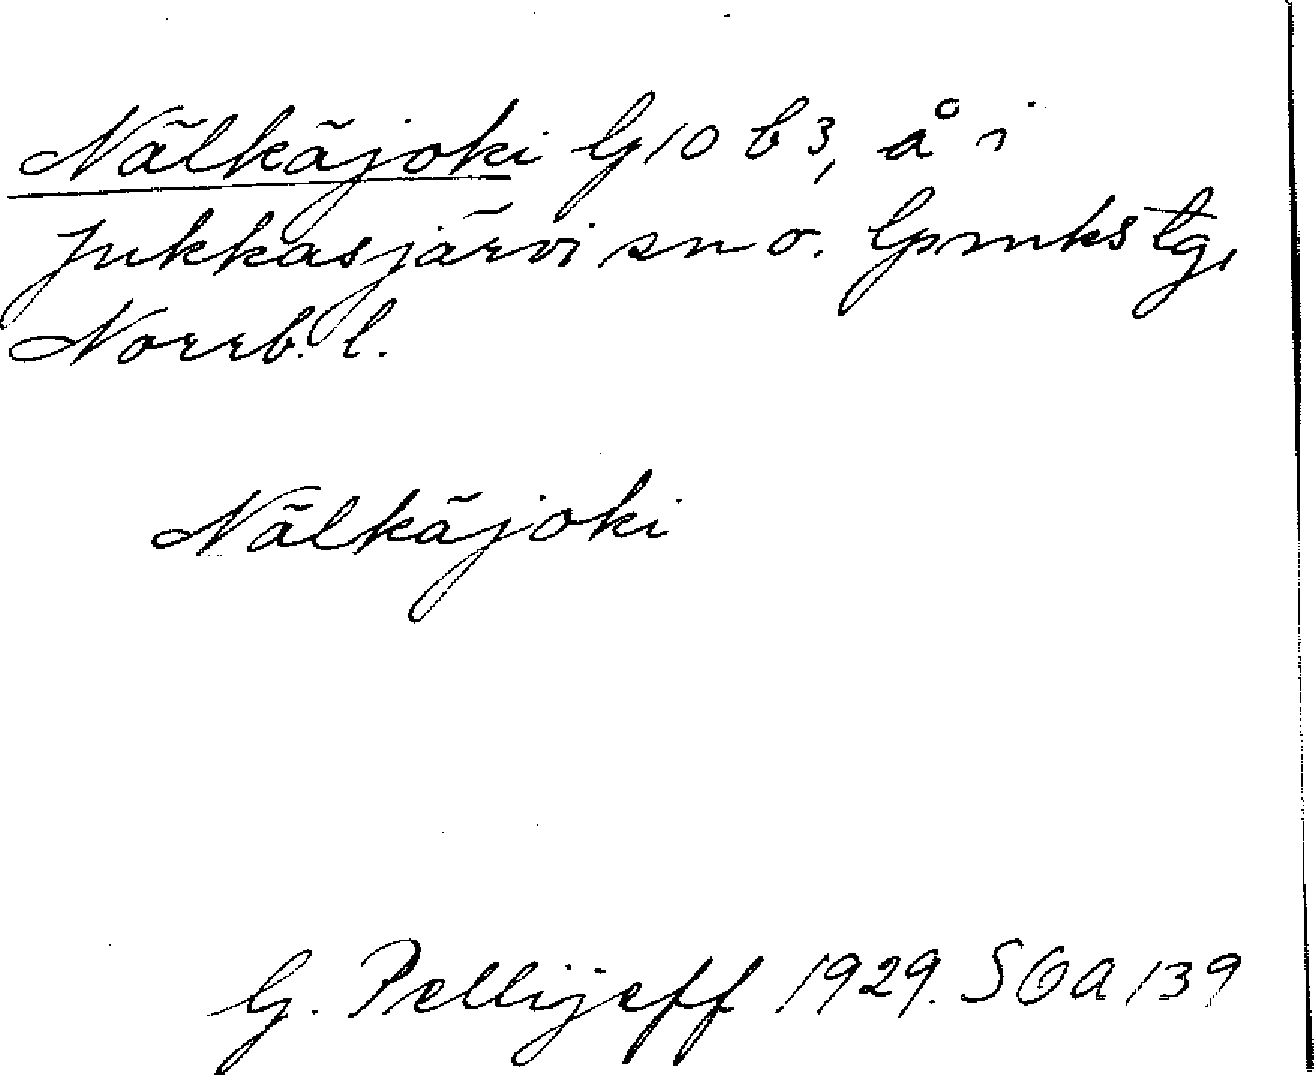 Nälkäjoki G10 b3, å i
Jukkasjärvi sn o. lpmkstg,
Norrb. l.
Nälkäjoki
G. Pellijeff 1929. SOA 139